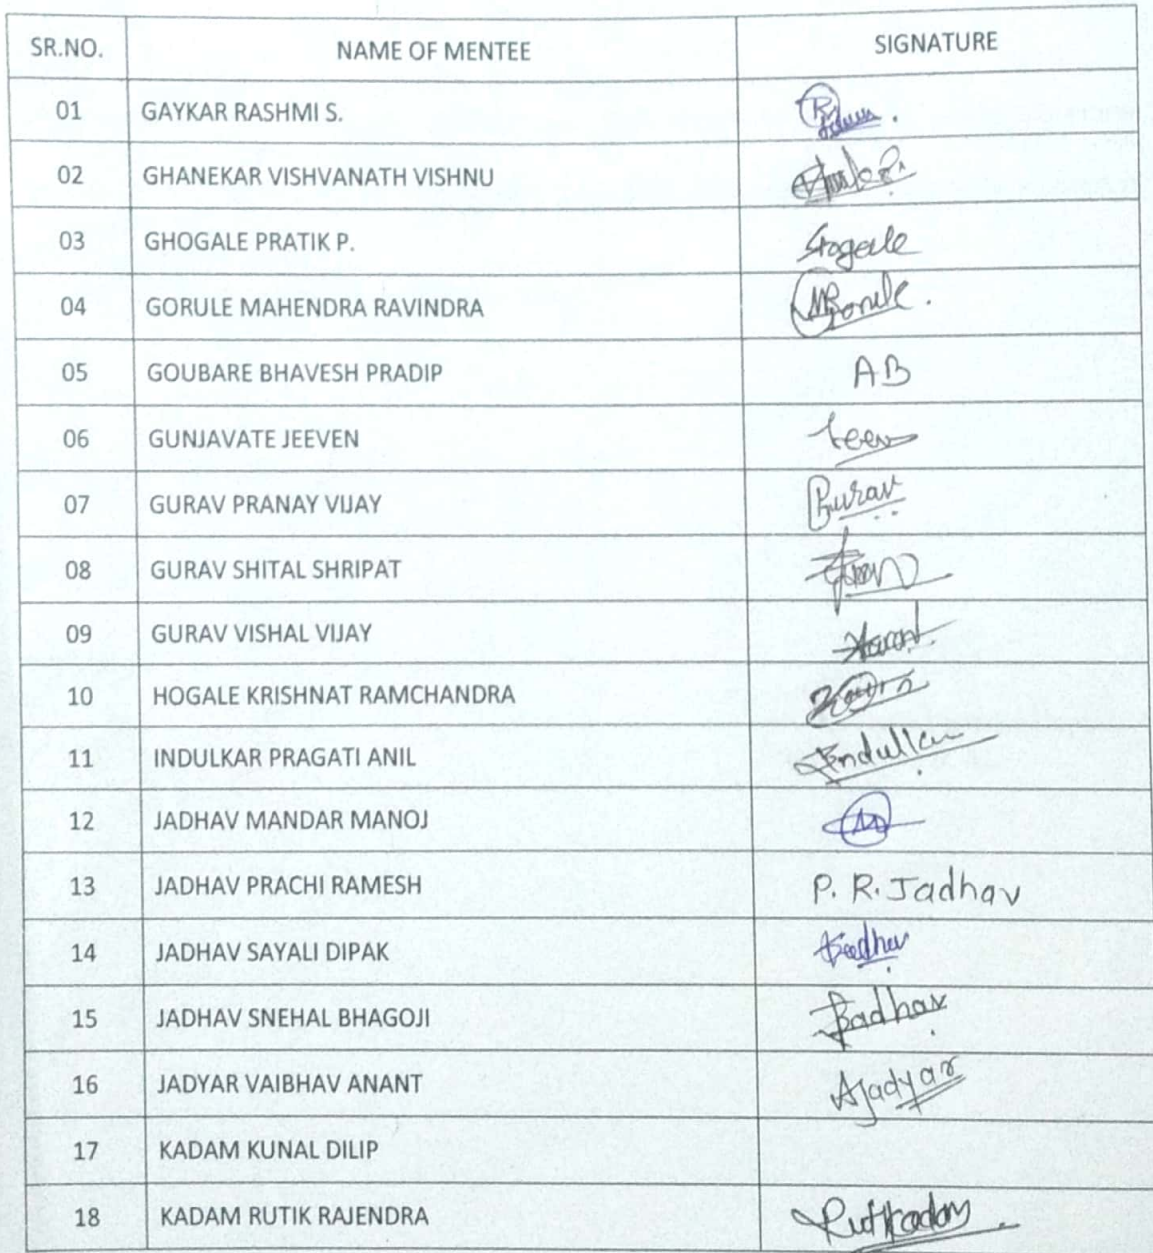 SR.NO. NAME OF MENTEE SIGNATURE
01 GAYKAR RASHMI S.
02 GHANEKAR VISHVANATH VISHNU
03 GHOGALE PRATIK P. Ghogale
04 GORULE MAHENDRA RAVINDRA MRGorule.
05 GOUBARE BHAVESH PRADIP AB
06 GUNJAVATE JEEVEN
07 GURAV PRANAY VIJAY Gurav
08 GURAV SHITAL SHRIPAT
09 GURAV VISHAL VIJAY
10 HOGALE KRISHNAT RAMCHANDRA
11 INDULKAR PRAGATI ANIL
12 JADHAV MANDAR MANOJ
13 JADHAV PRACHI RAMESH P. R. Jadhav
14 JADHAV SAYALI DIPAK
15 JADHAV SNEHAL BHAGOJI
16 JADYAR VAIBHAV ANANT AJadyar
17 KADAM KUNAL DILIP
18 KADAM RUTIK RAJENDRA